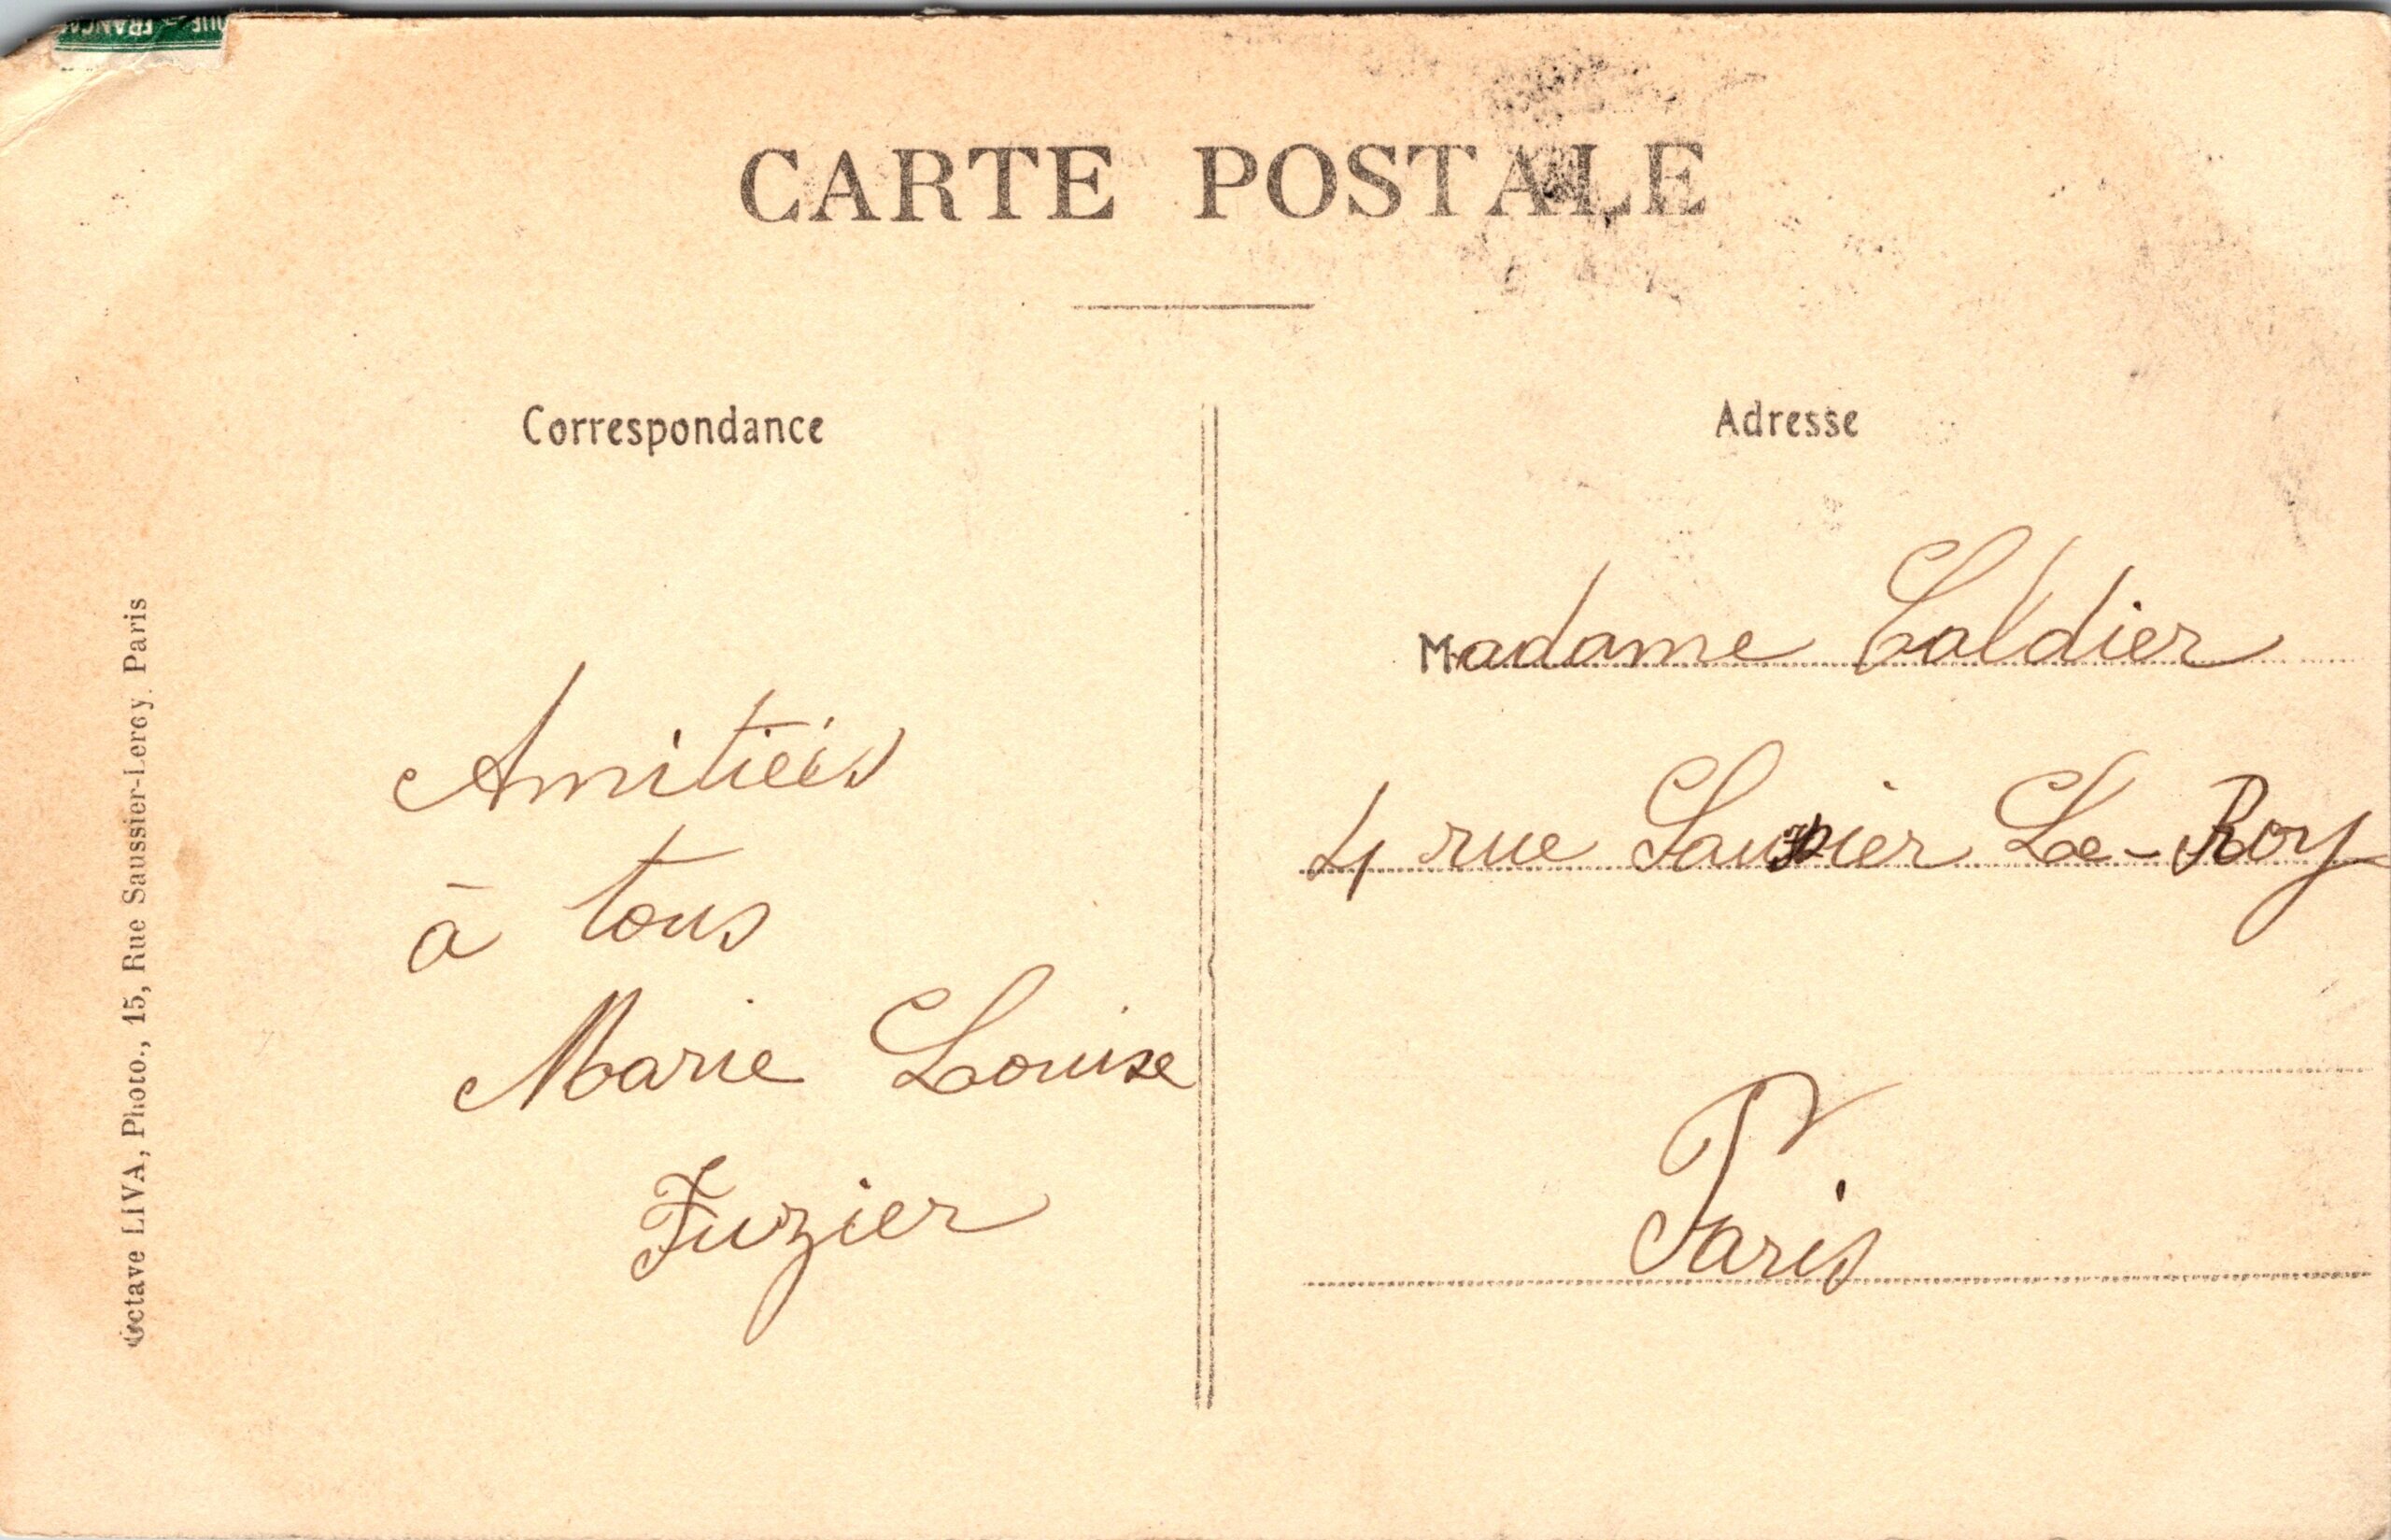 CARTE POSTALE
Correspondance
Adresse
Amitiés
à tous
Marie Louise
Fuzier
Madame
4 rue Le-Roy
Paris
Octave LIVA, Photo., 15, Rue Saussier-Leroy. Paris